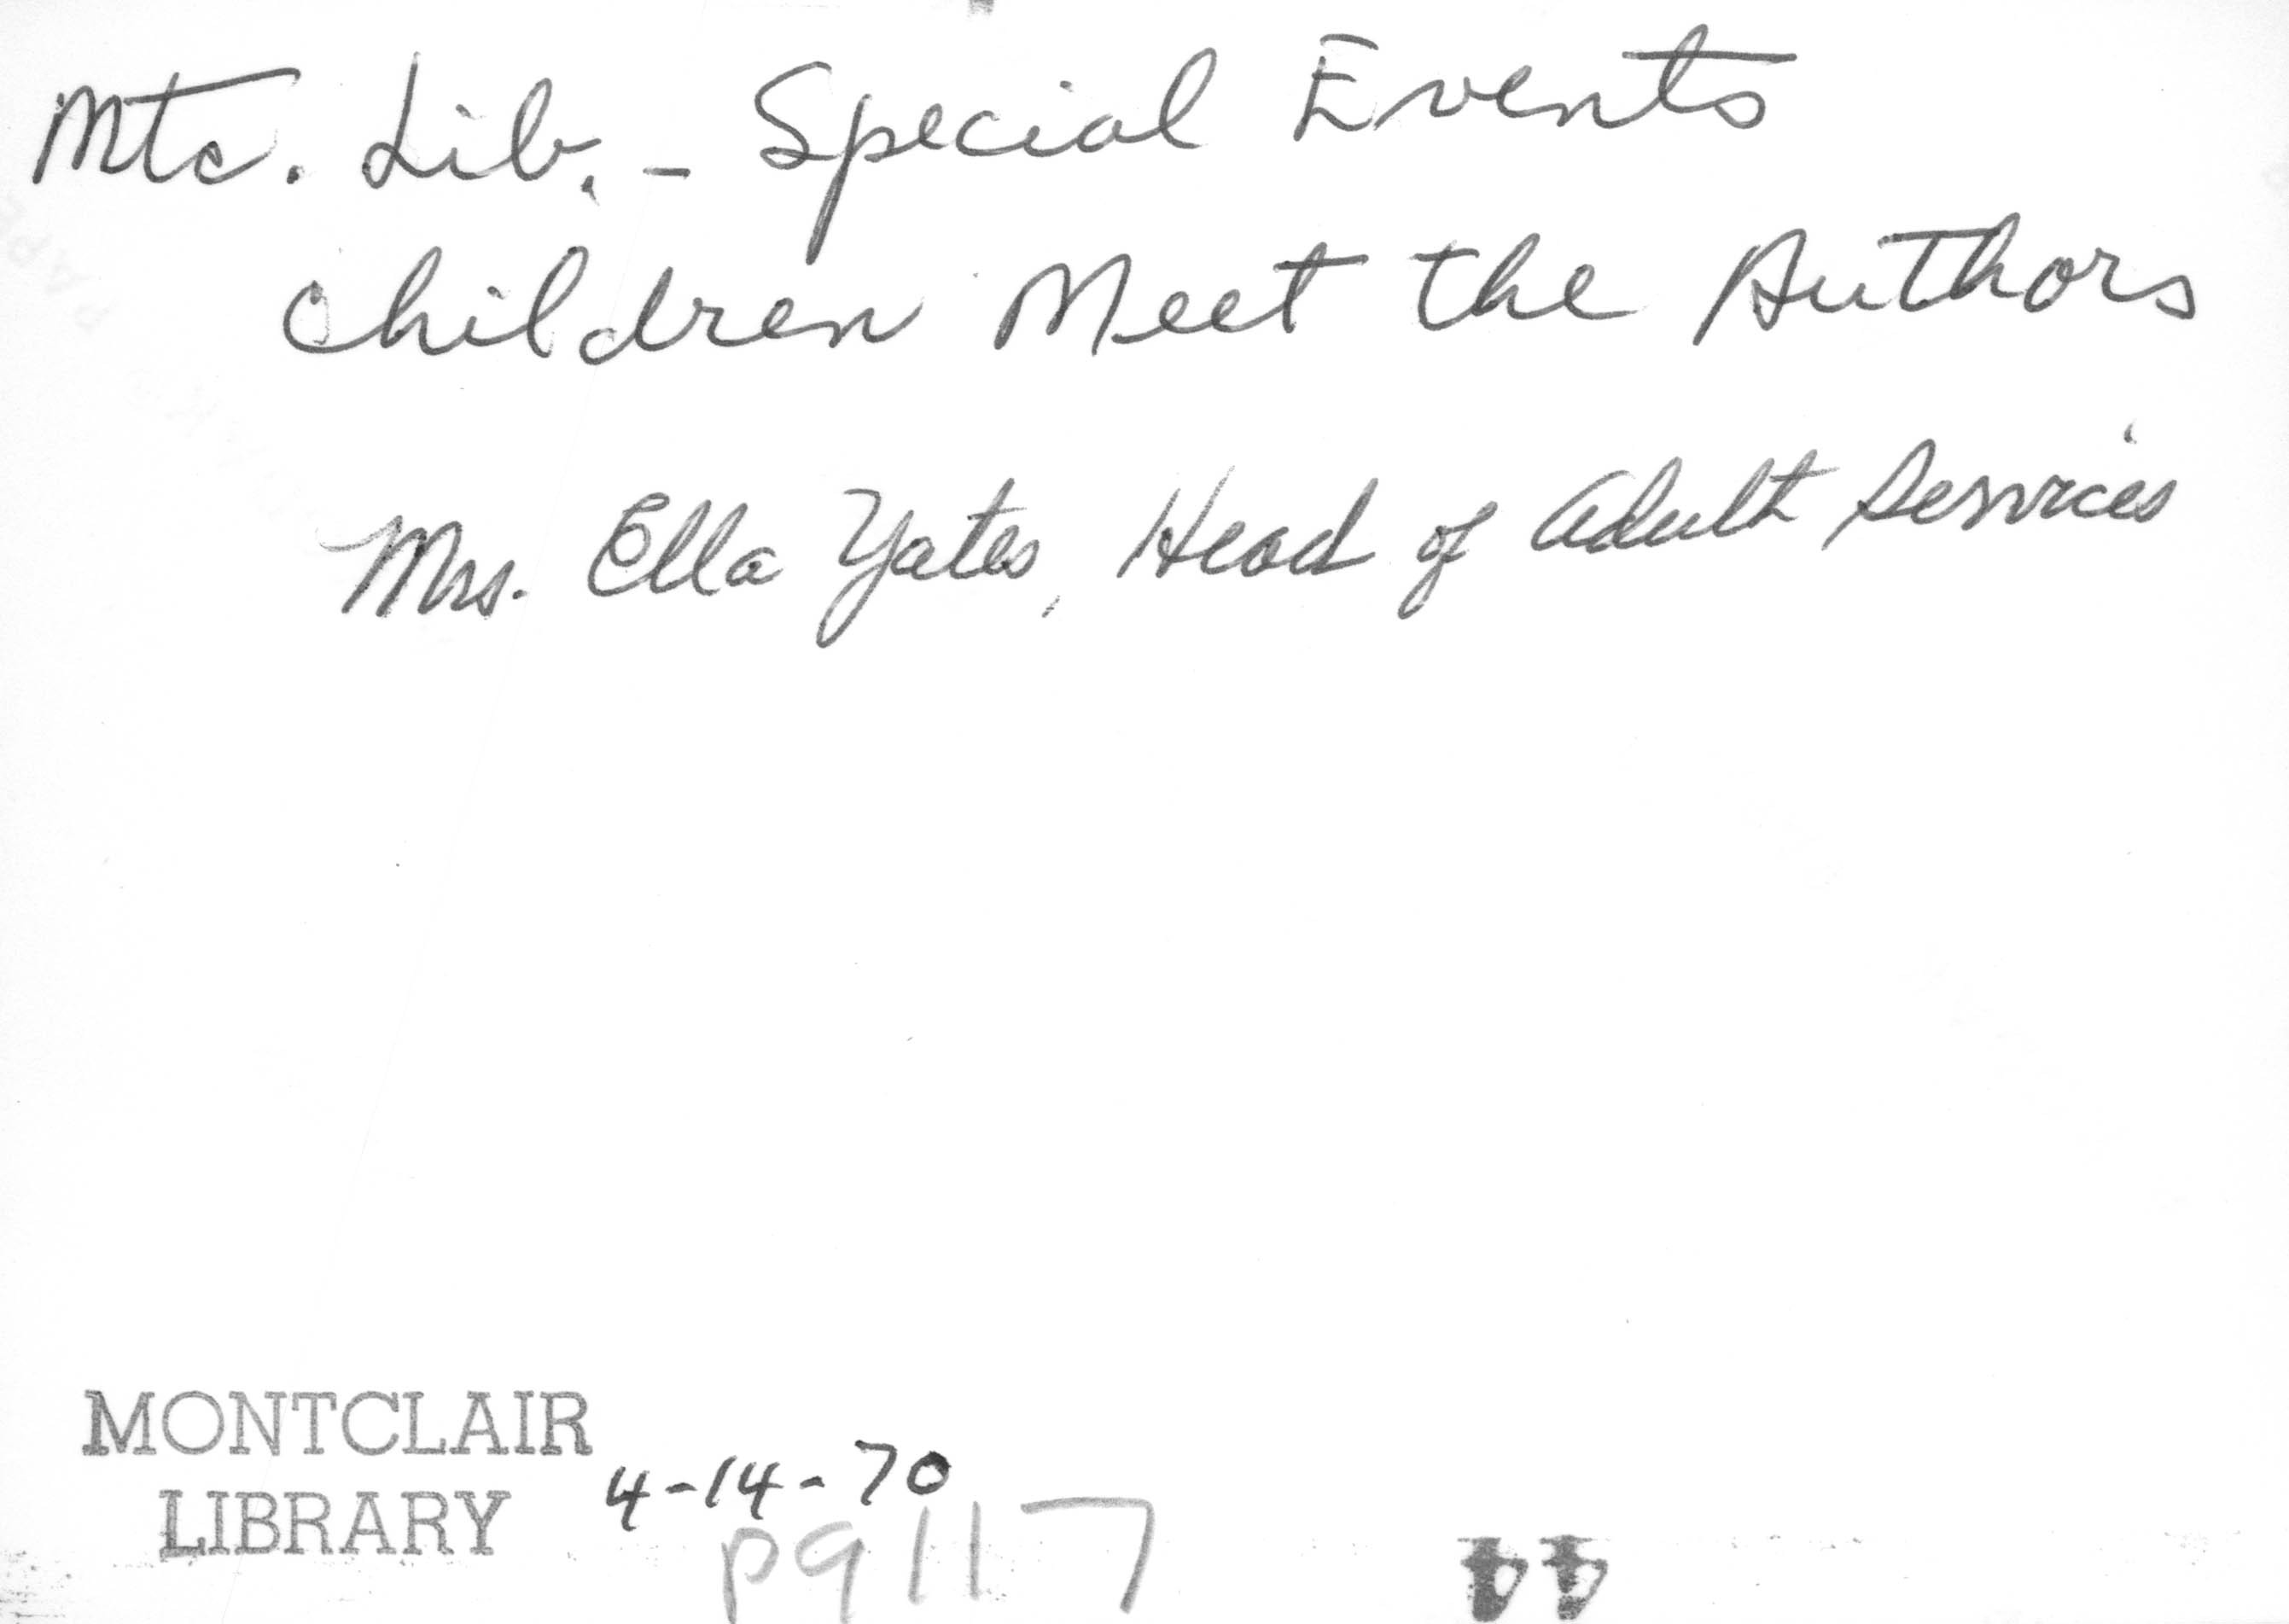 Mtc. Lib. - Special Events
Children Meet the Authors
Mrs. Ella Yates, Head of Adult Services
MONTCLAIR
LIBRARY
4-14-70
p9117